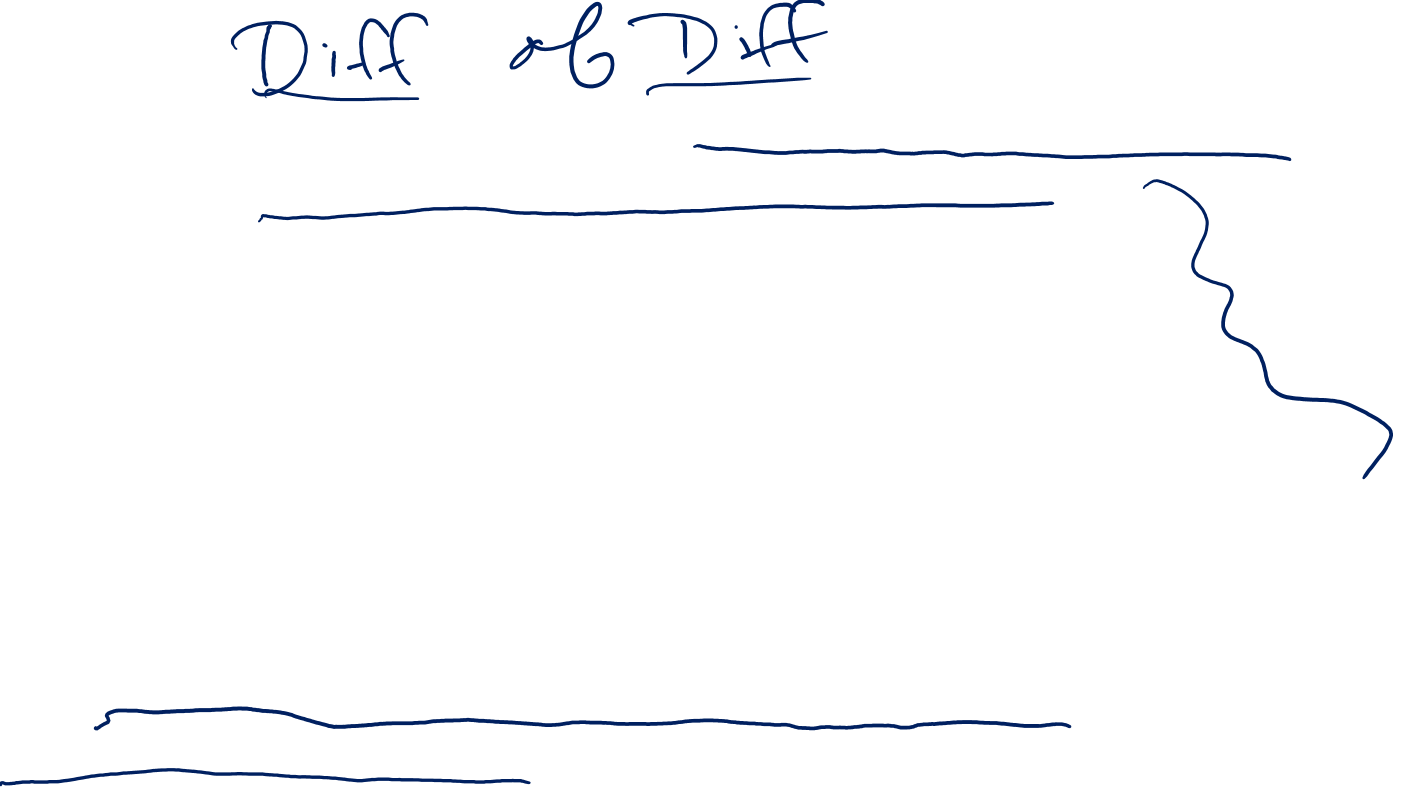 Diff of Diff